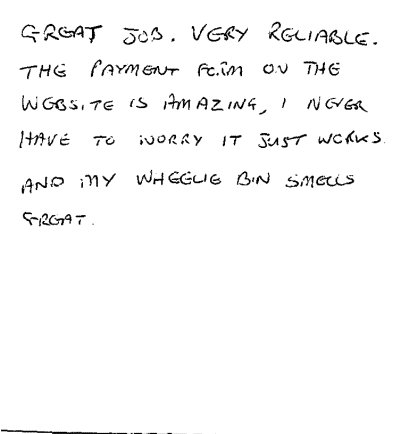 GREAT JOB. VERY RELIABLE.
THE PAYMENT FORM ON THE
WEBSITE IS AMAZING, I NEVER
HAVE TO WORRY IT JUST WORKS.
AND MY WHEELIE BIN SMELLS
GREAT.